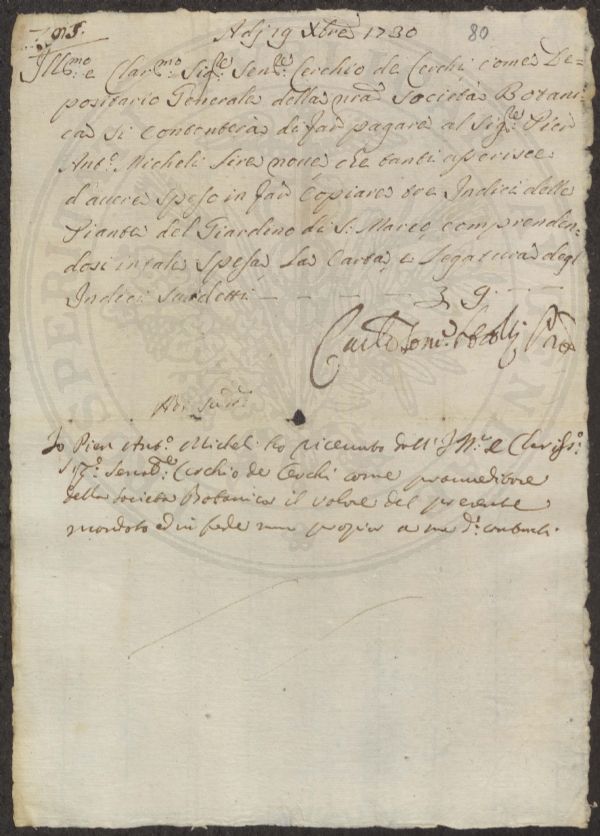 Adj 19 Xbre 1730 80
Ill.mo e Clar.mo Sig.re Sen.re Cerchio de Cerchi come De=
positario Generale della nra Società Botani=
ca si contenterà di far pagare al Sig.re Pier
Ant.o Micheli Lire nove che tanti asserisce
d'avere speso in far Copiare tre Indici delle
Piante del Giardino di S. Marco, comprenden=
dosi in tale spesa la Carta, e Legatura degl
Indici sudetti - - - - - - £ 9. - -
Adi sud.o
Io Pier Ant.o Micheli ho ricevuto dall' Ill.mo e Clariss.o
Sig.e Senat.e Cerchio de Cerchi come proveditore
della società Botanica il valore del presente
mandato ed in fede mano propria a me d.i contanti.